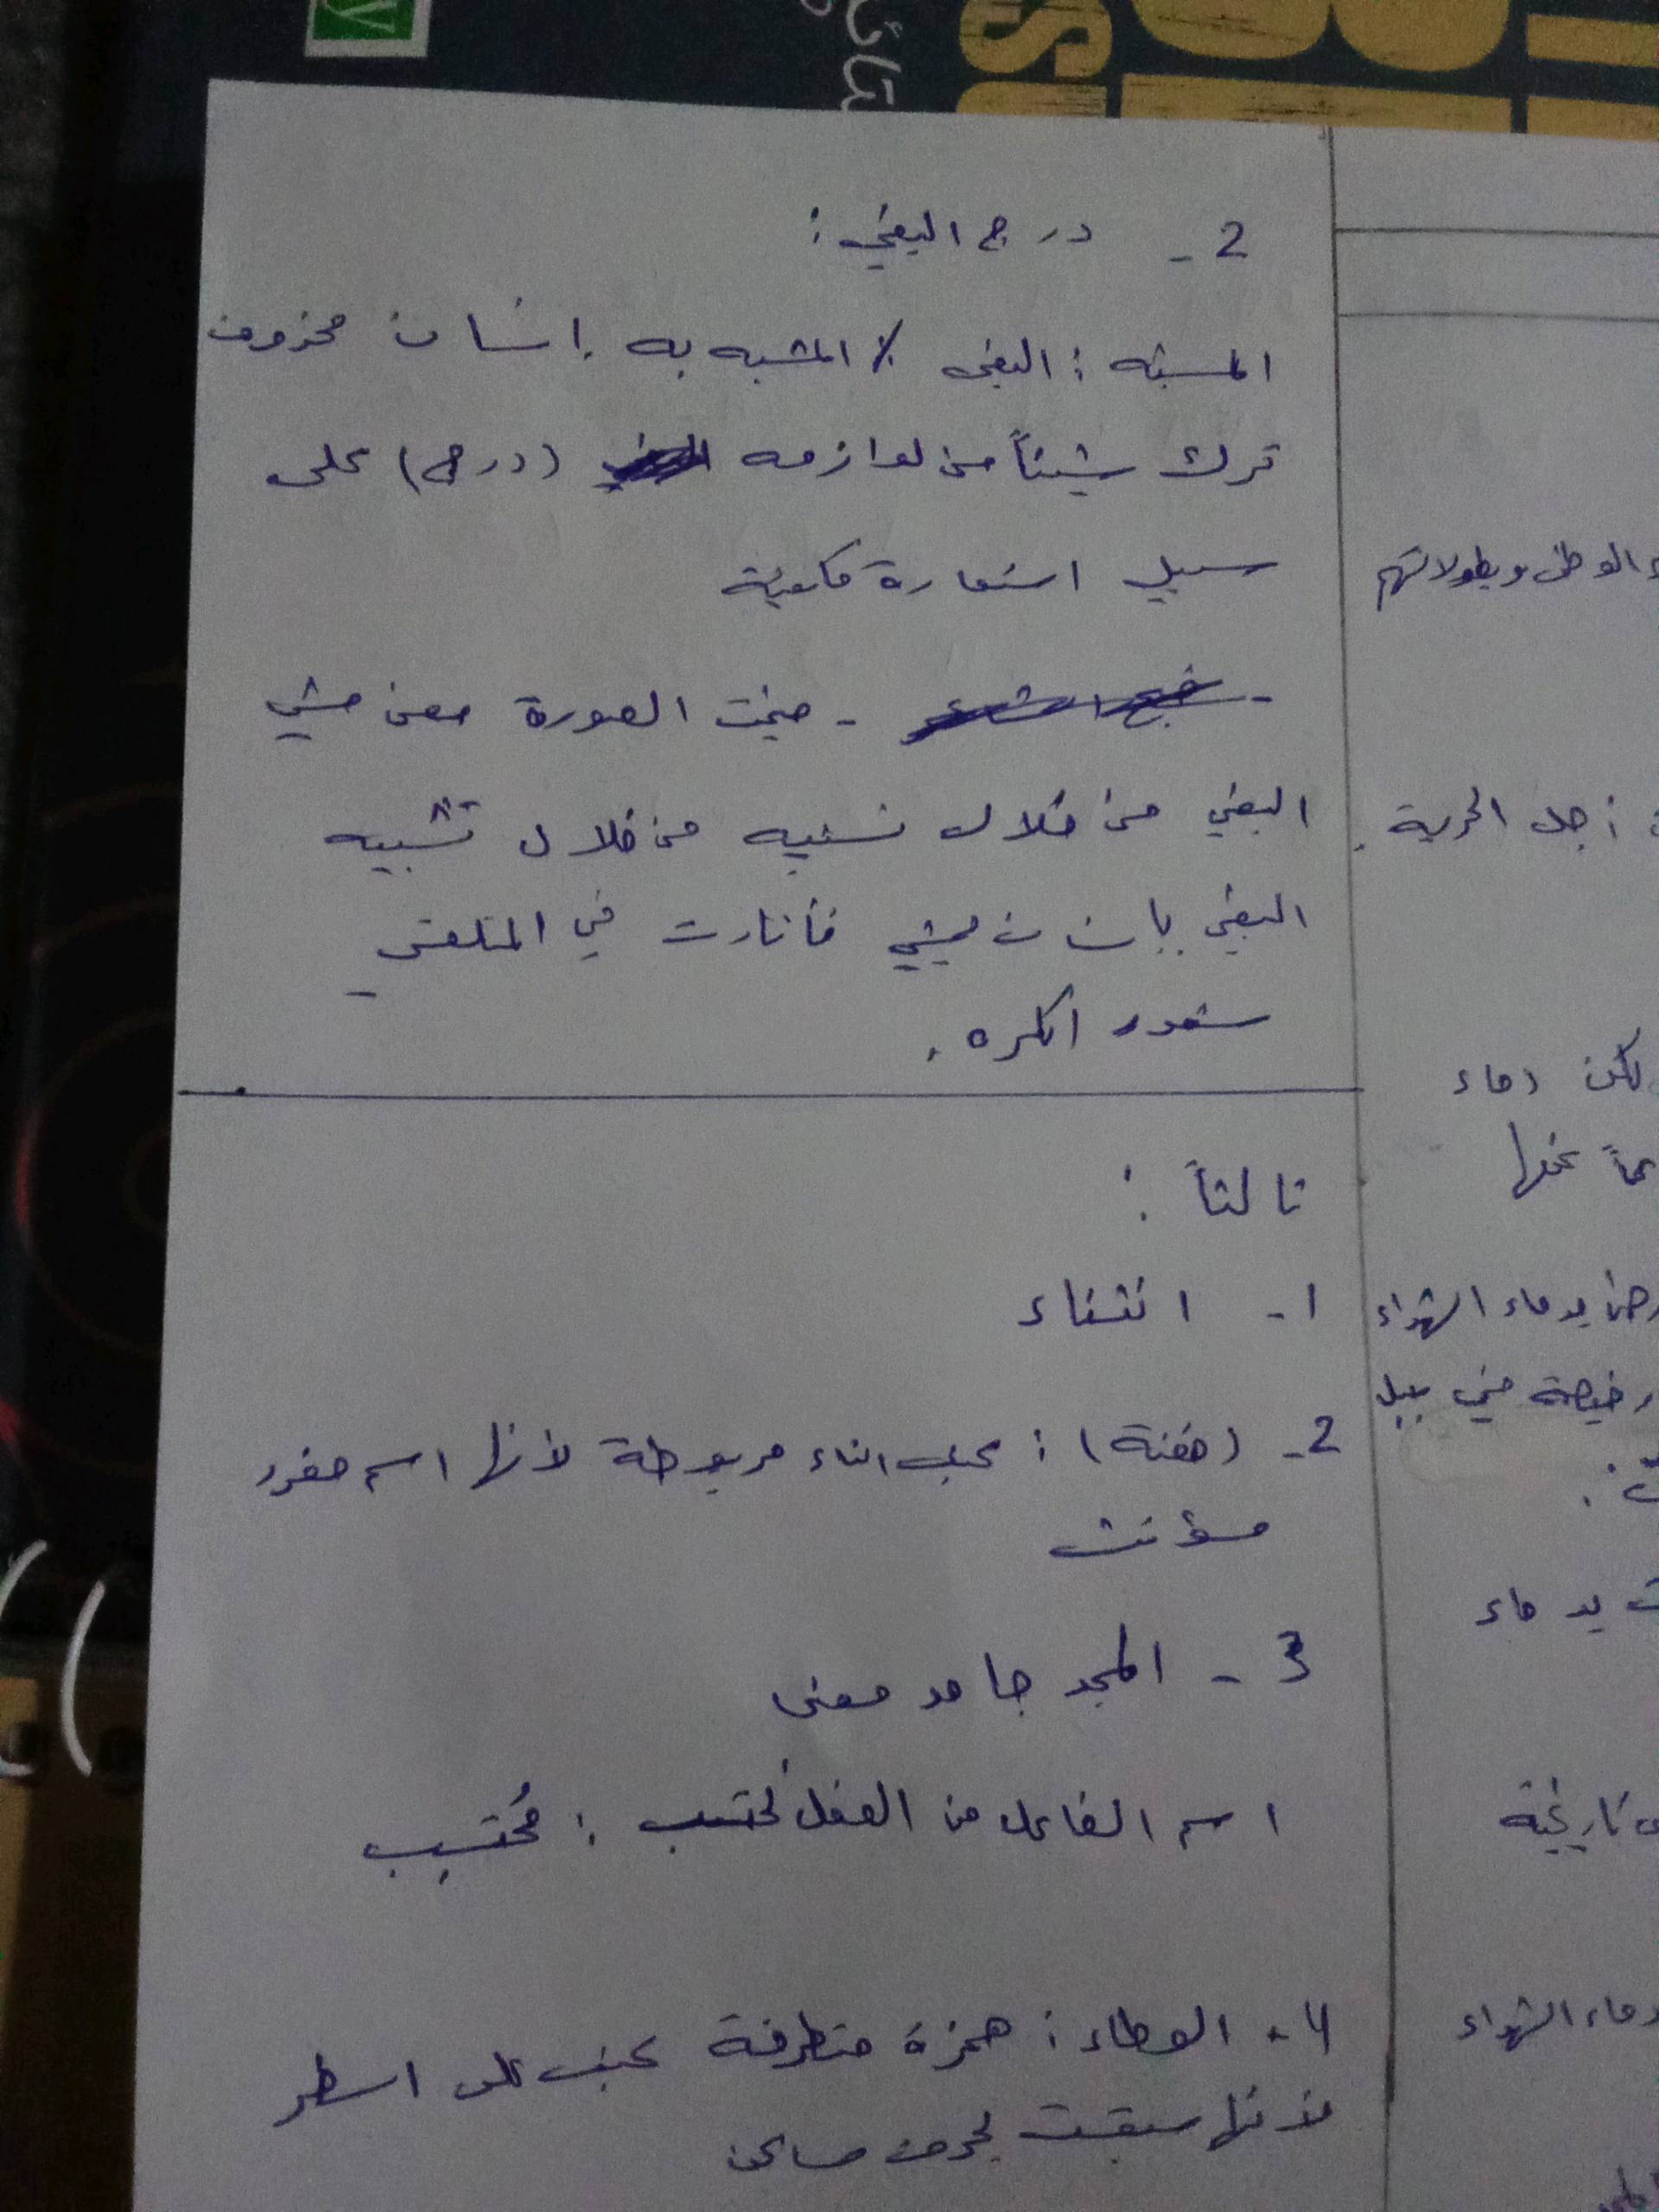 2 - درج البغي :
المشبه : البغي / المشبه به إنسان محذوف
ترك شيئاً من لوازمه (درج) على
سبيل استعارة مكنية
- منحت الصورة معنى مشي
البغي من خلال تشبيه من خلال تشبيه
البغي بإنسان يمشي فأثارت في المتلقي
شعور الكره .
ثالثاً :
1 - انتشاء
2 - (حفنة) : كتبت التاء مربوطة لأنها اسم مفرد
مؤنث
3 - المجد جامد معنى
اسم الفاعل من الفعل تحتسب : مُحتسِب
4 - العطاء : همزة متطرفة كتبت على السطر
لأنها سبقت بحرف ساكن
الوطن وبطولاتهم
أجل الحرية .
لكن دماء
بدماء الشهداء
رخيصة في سبيل
بدماء
تاريخية
دماء الشهداء